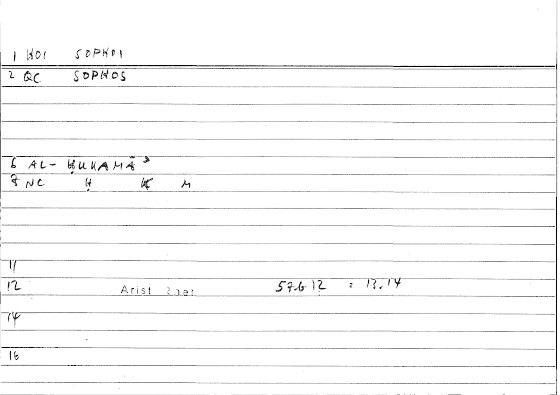 1 HOI SOPHOI
2 QC SOPHOS
6 AL- ḤUKAMĀʾ
8 NC Ḥ K M
11
12 Arist Rhet 57.6 12 : 13.14
14
16